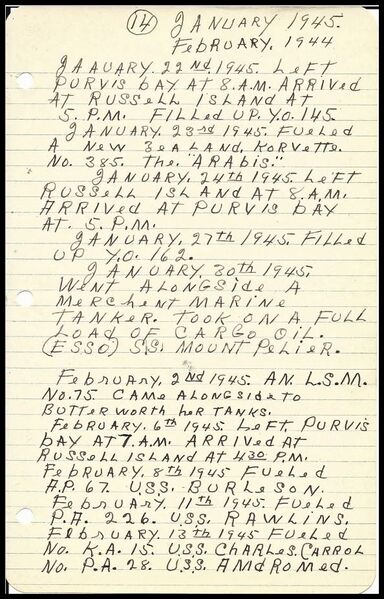 (14) JANUARY 1945.
February, 1944
JAAUARY. 22nd 1945. Left
PURVIS BAY AT 8.A.M. ARRIVED
AT RUSSELL ISLAND AT
5. P.M. FILLED UP. Y.O. 145.
JANUARY. 23rd 1945. Fueled
A New Zealand, Korvette.
No. 385. The "ARAbis."
JANUARY. 24th 1945. Left
RUSSELL ISLAND AT 8.A.M.
ARRIVED AT PURVIS BAY
AT. 5. P.M.
JANUARY, 27th 1945. Filled
UP Y.O. 162.
JANUARY. 30th 1945.
Went Alongside A
Merchent Marine
TANKER. TOOK ON A FULL
LOAD OF CARGO OIL.
(ESSO) S.S. MOUNT PELIER.
February, 2nd 1945. AN. L.S.M.
No. 75. CAME ALONGSIDE TO
BUTTERWORTH her TANKS.
February. 6th 1945 Left PURVIS
BAY AT 7.A.M. ARRIVED AT
RUSSELL ISLAND AT 430 P.M.
February, 8th 1945 Fueled
A.P. 67. U.S.S. BURLESON.
February. 11th 1945. Fueled
P.A. 226. U.S.S. RAWLINS.
February. 13th 1945 Fueled
No. K.A. 15. U.S.S. CHARLES, CARROL
No. P.A. 28. U.S.S. AMdROMED.